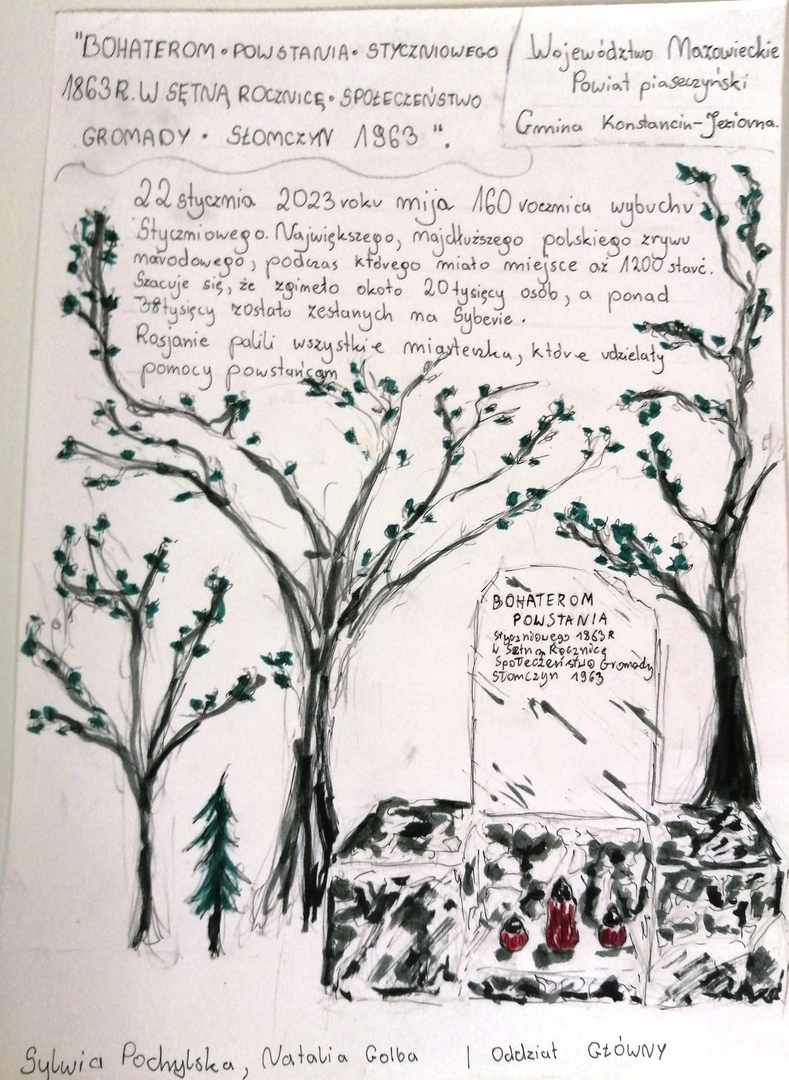 "BOHATEROM • POWSTANIA • STYCZNIOWEGO
1863R. W SĘTNĄ ROCZNICĘ • SPOŁECZEŃSTWO
GROMADY • SŁOMCZYN 1963".
Województwo Mazowieckie
Powiat piaseczyński
Gmina Konstancin-Jeziorna.
22 stycznia 2023 roku mija 160 rocznica wybuchu
Styczniowego. Największego, najdłuższego polskiego zrywu
narodowego, podczas którego miało miejsce aż 1200 starć.
Szacuje się, że zgineło około 20 tysięcy osób, a ponad
38 tysięcy zostało zesłanych na Syberie.
Rosjanie palili wszystkie miasteczka, które udzielały
pomocy powstańcom
BOHATEROM
POWSTANIA
Styczniowego 1863R
W Setną Rocznicę
Społeczeństwo Gromady
Słomczyn 1963
Sylwia Pochylska, Natalia Golba | Oddział GŁÓWNY